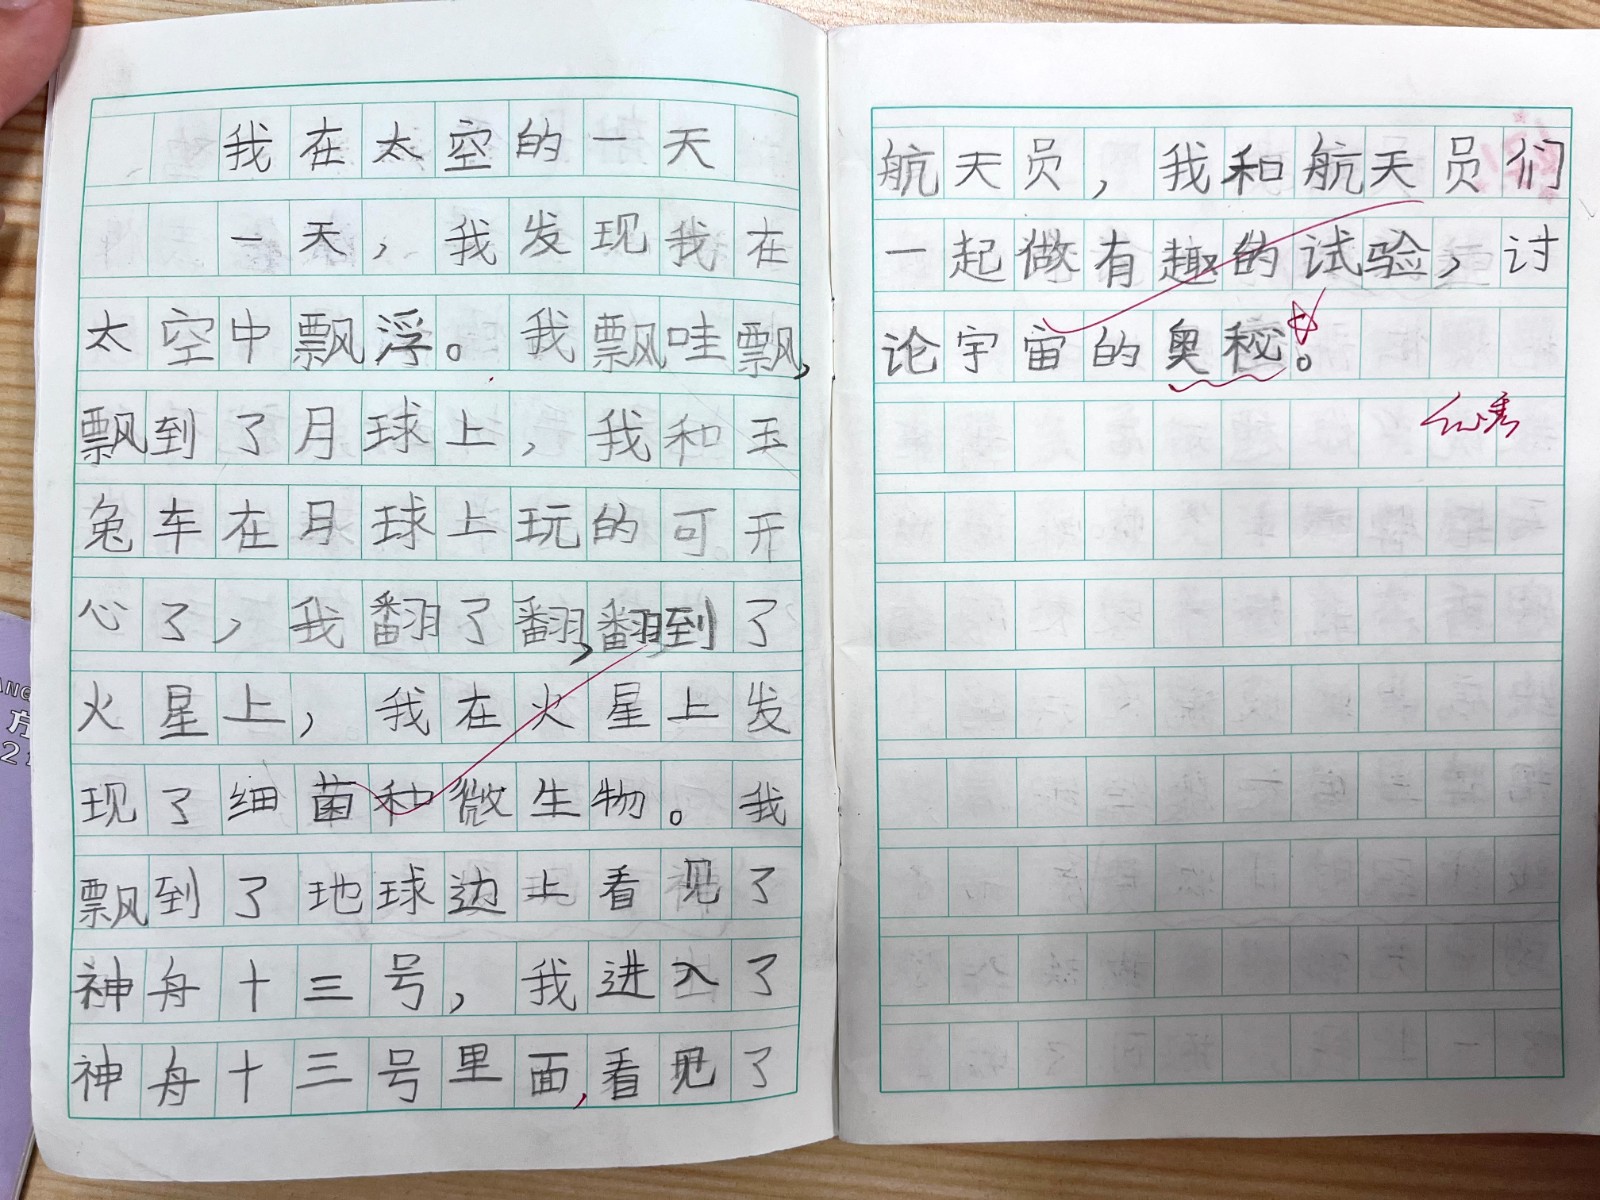 我在太空的一天
一天，我发现我在
太空中飘浮。我飘哇飘，
飘到了月球上，我和玉
兔车在月球上玩的可开
心了，我翻了翻，翻到了
火星上，我在火星上发
现了细菌和微生物。我
飘到了地球边上看见了
神舟十三号，我进入了
神舟十三号里面，看见了
航天员，我和航天员们
一起做有趣的试验，讨
论宇宙的奥秘。